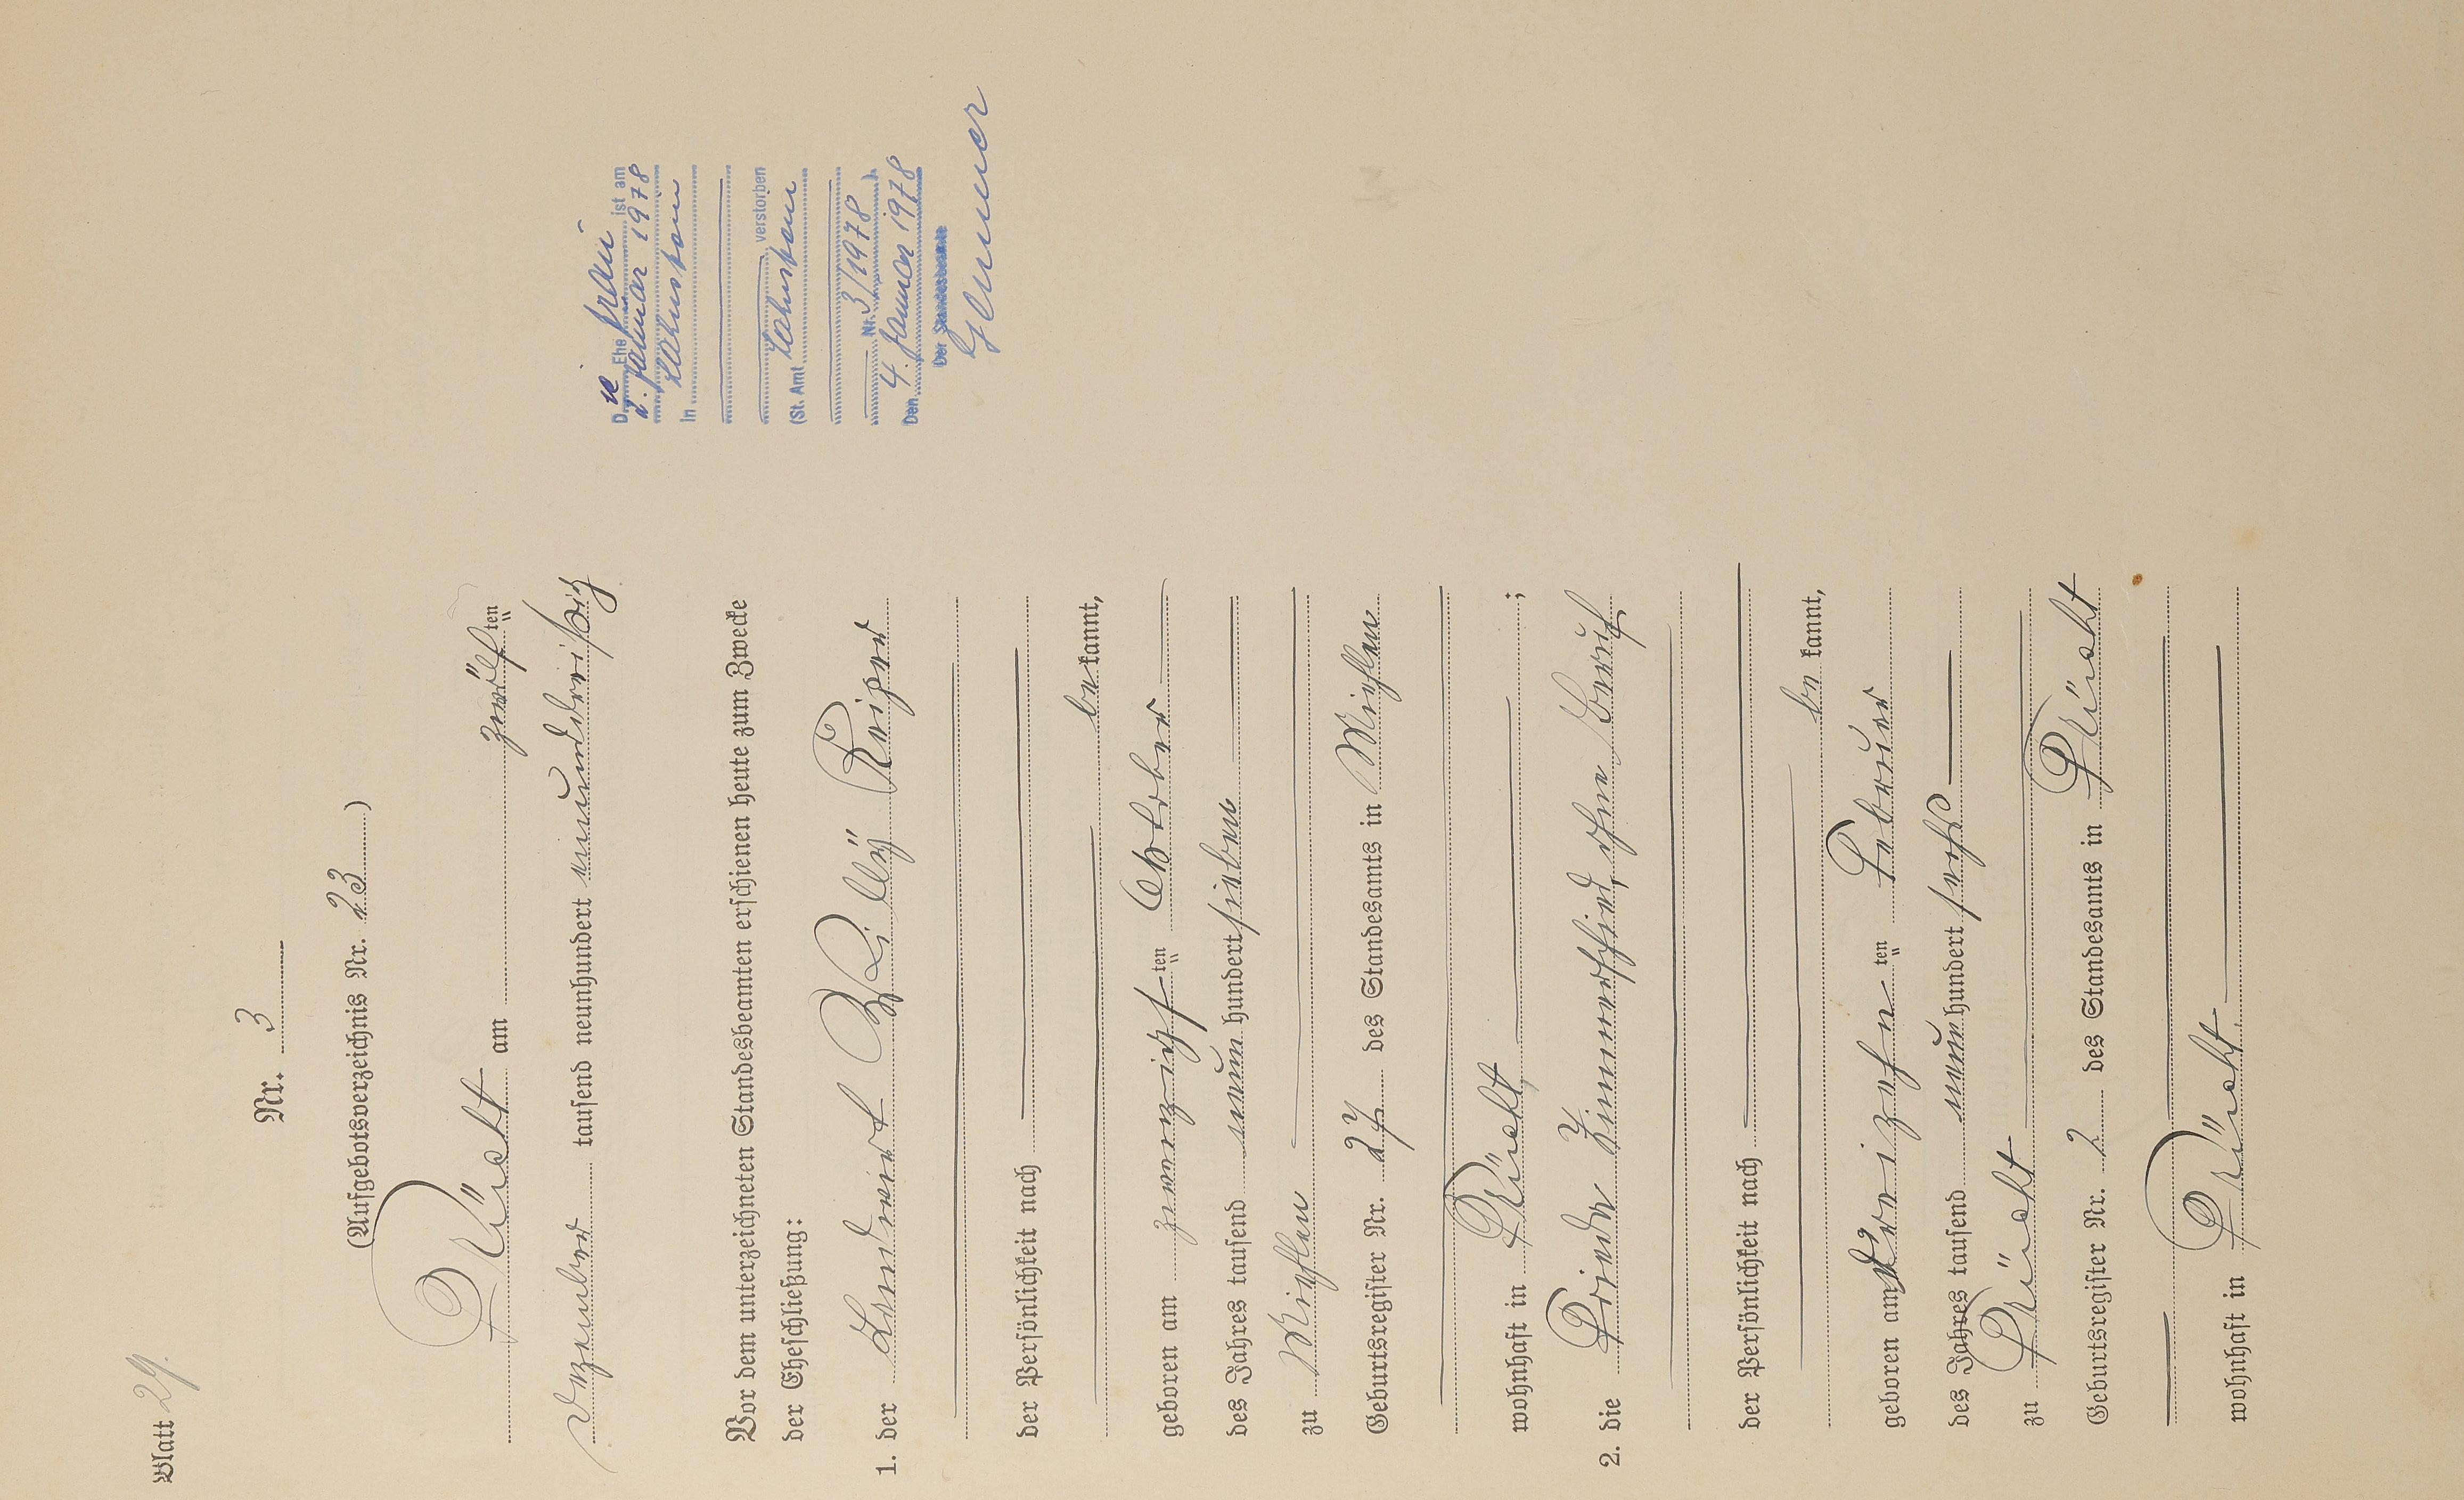 Blatt 24.
Nr. 3
(Aufgebotsverzeichnis Nr. 23)
am zwölf ten
Dezember tausend neunhundert neununddreißig
Vor dem unterzeichneten Standesbeamten erschienen heute zum Zwecke
der Eheschließung:
1. der Landwirt Willy
der Persönlichkeit nach
be kannt,
geboren am zwanzigs ten Oktober
des Jahres tausend neun hundert sieben
zu Miehlen
Geburtsregister Nr. 27 des Standesamts in Miehlen
wohnhaft in ;
2. die Frieda Zimmerschied, ohne Beruf
der Persönlichkeit nach
be kannt,
geboren am dreizehn ten Februar
des Jahres tausend neun hundert sechs
zu
Geburtsregister Nr. 2 des Standesamts in
wohnhaft in
Die Ehe frau ist am
2. Januar 1978
In Lahnstein
verstorben
(St. Amt Lahnstein
Nr. 3/1978 )
Den 4. Januar 1978
Der Standesbeamte